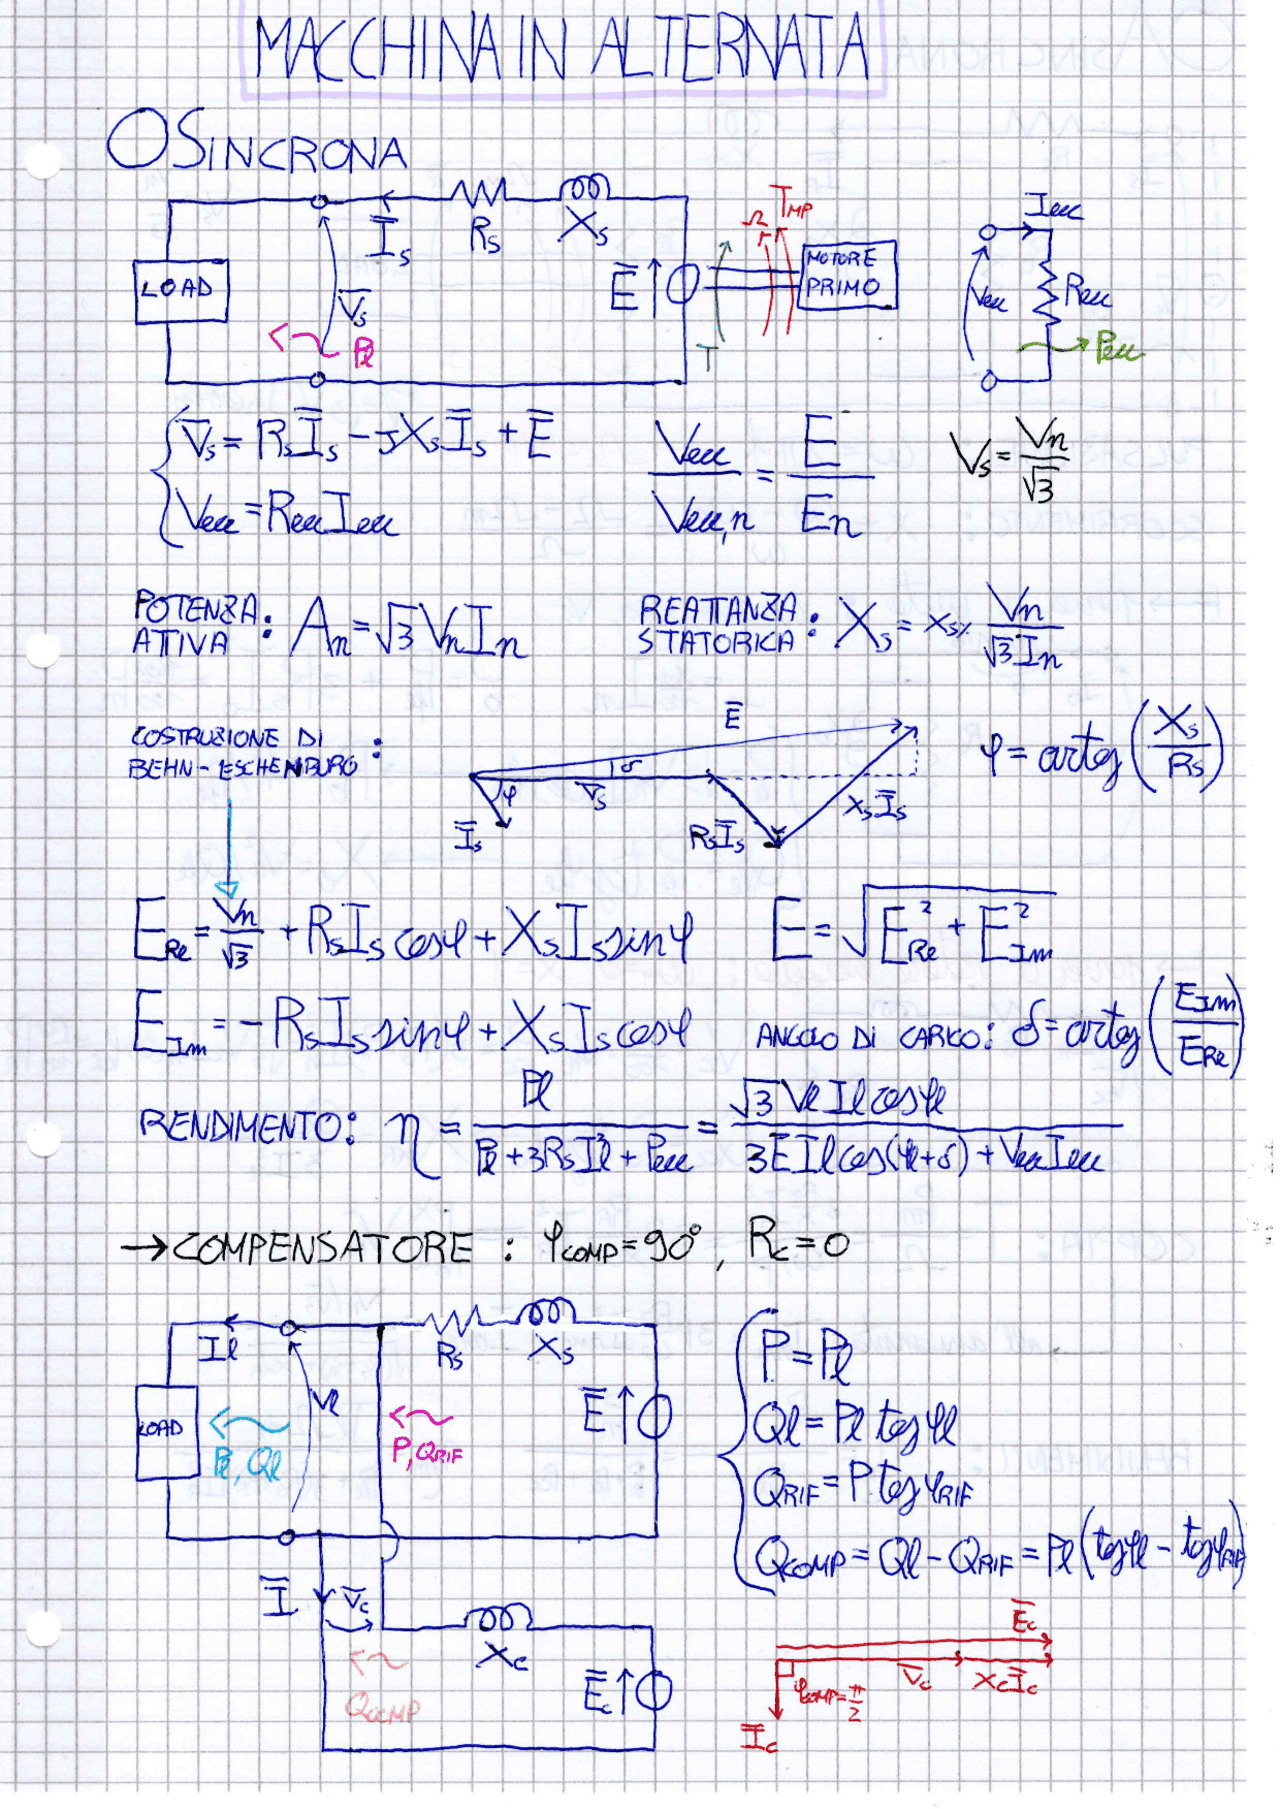 MACCHINA IN ALTERNATA
O SINCRONA
LOAD
V̅s
Pℓ
I̅s
Rs
Xs
E̅
T
Ω
TMP
MOTORE PRIMO
Iecc
Vecc
Recc
Pecc
V̅s = RsI̅s - JXsI̅s + E̅
Vecc = Recc Iecc
Vecc / Vecc,n = E / En
Vs = Vn / √3
POTENZA ATTIVA: An = √3 Vn In
REATTANZA STATORICA: Xs = xs% Vn / √3 In
COSTRUZIONE DI BEHN-ESCHENBURG:
E̅
δ
V̅s
φ
I̅s
RsI̅s
XsI̅s
φ = arctg (Xs / Rs)
ERe = Vn / √3 + RsIs cosφ + XsIs sinφ
E = √(E²Re + E²Im)
EIm = -RsIs sinφ + XsIs cosφ
ANGOLO DI CARICO: δ = arctg (EIm / ERe)
RENDIMENTO: η = Pℓ / (Pℓ + 3RsIℓ² + Pecc) = √3 Vℓ Iℓ cosφℓ / (3EIℓ cos(φℓ+δ) + Vecc Iecc)
→ COMPENSATORE : φCOMP = 90°, Rc = 0
Iℓ
Rs
Xs
LOAD
Vℓ
Pℓ, Qℓ
P, QRIF
E̅
P = Pℓ
Qℓ = Pℓ tgφℓ
QRIF = P tgφRIF
QCOMP = Qℓ - QRIF = Pℓ (tgφℓ - tgφRIF)
I̅
V̅c
Xc
QCOMP
E̅c
E̅c
φCOMP = π/2
V̅c
XcI̅c
I̅c